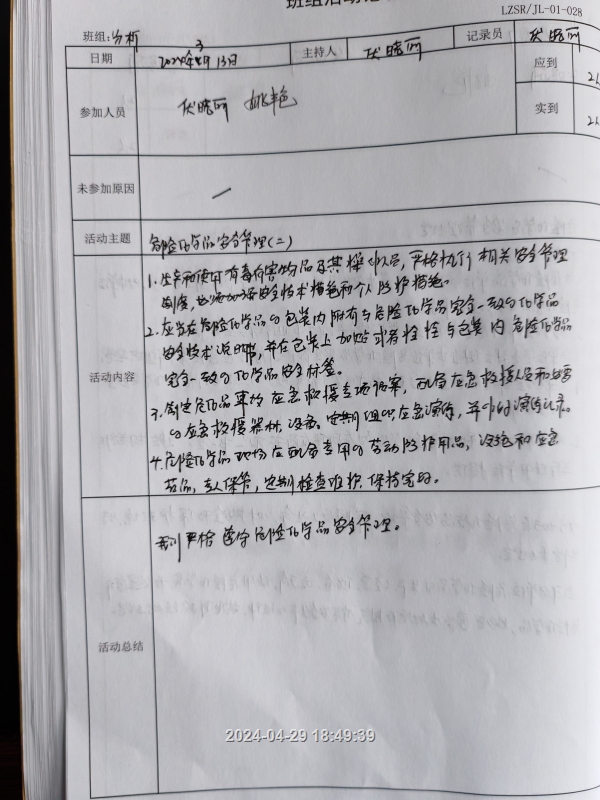 班组活动
LZSR/JL-01-028
班组:分析
日期 2024年3月13日 主持人 记录员
应到 2人
参加人员 姚艳 实到 2人
未参加原因
活动主题 危险化学品安全管理(二)
活动内容
1. 生产和使用有毒有害物品及其操作人员,严格执行相关安全管理
制度,必须加强安全技术措施和个人防护措施。
2. 应当在危险化学品的包装内附有与危险化学品完全一致的化学品
安全技术说明书,并在包装上加贴或者拴挂与包装内危险化学品
完全一致的化学品安全标签。
3. 制定危化品事故应急救援专项预案,配备应急救援人员和必要
的应急救援器材、设备。定期组织应急演练,并做好演练记录。
4. 危险化学品现场应配备专用的劳动防护用品,冲洗和应急
药品,专人保管,定期检查维护保持完好。
活动总结
我们严格遵守危险化学品安全管理。
2024-04-29 18:49:39